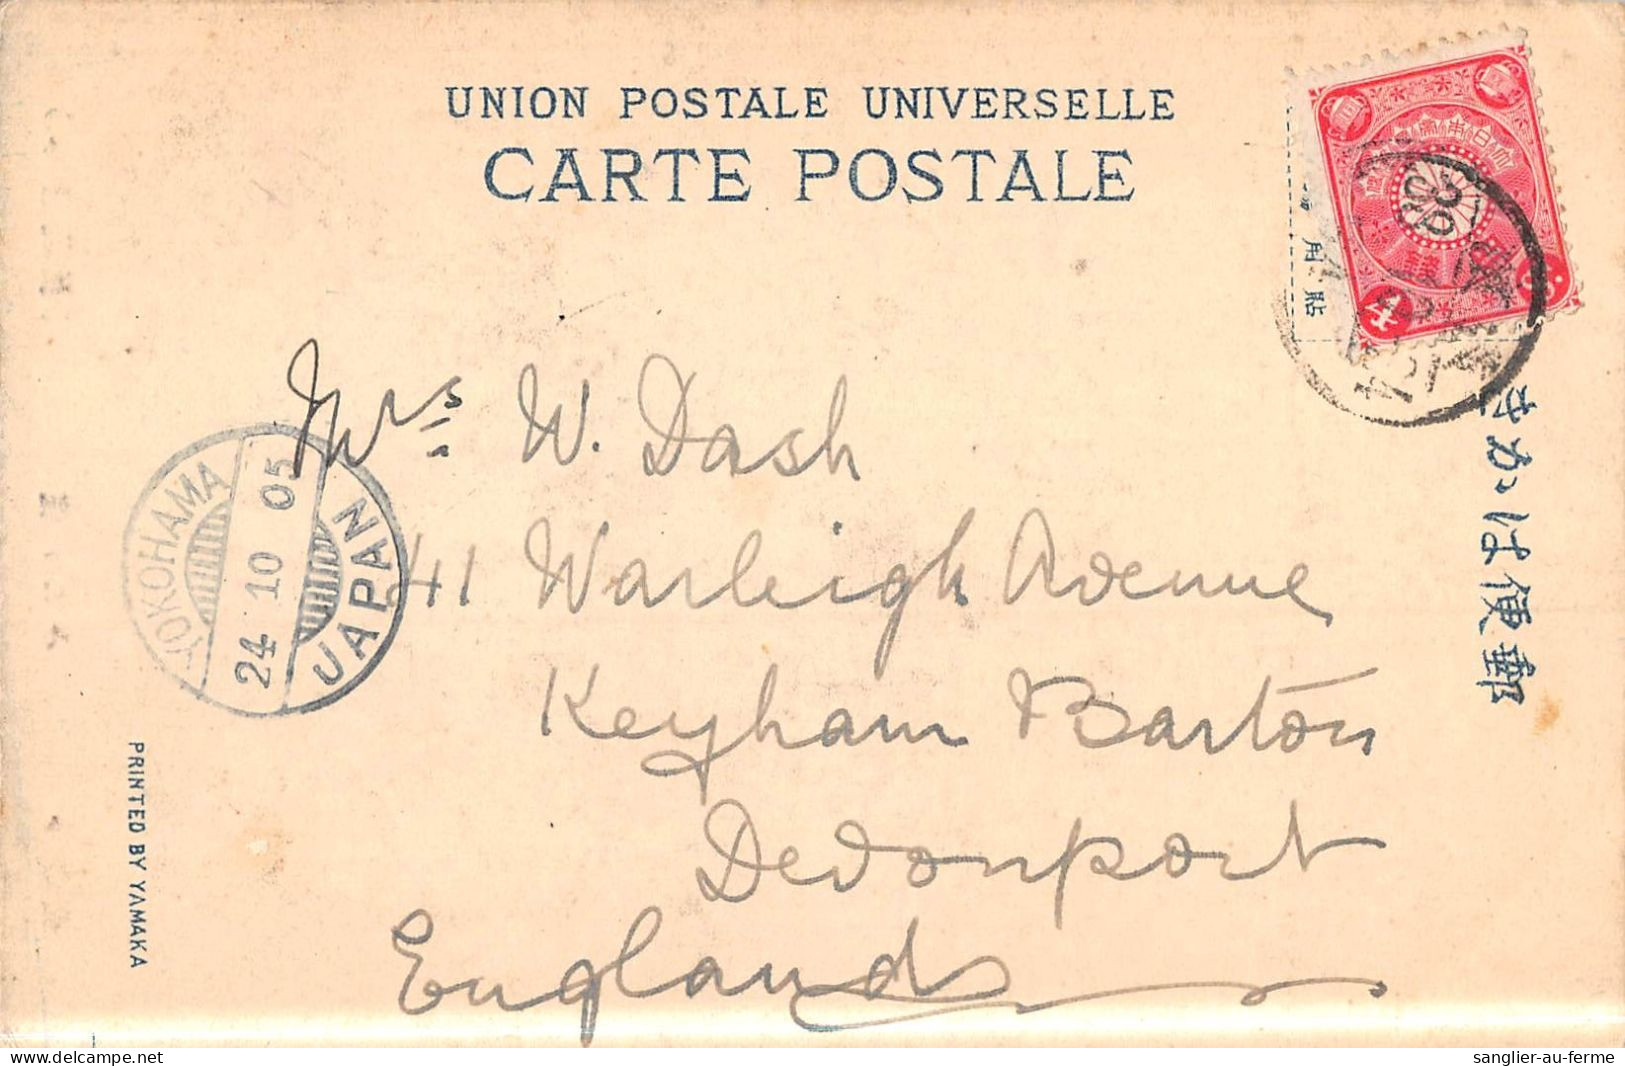 UNION POSTALE UNIVERSELLE
CARTE POSTALE
4
郵便はかき
Mrs W. Dash
41 Warleigh Avenue
Keyham Barton
Devonport
England
YOKOHAMA
24 10 05
JAPAN
PRINTED BY YAMAKA
delcampe.net
sanglier-au-ferme